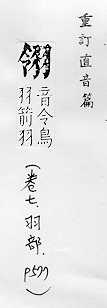 重訂直音篇
翎
音令鳥
羽箭羽
(卷七.羽部.p577)